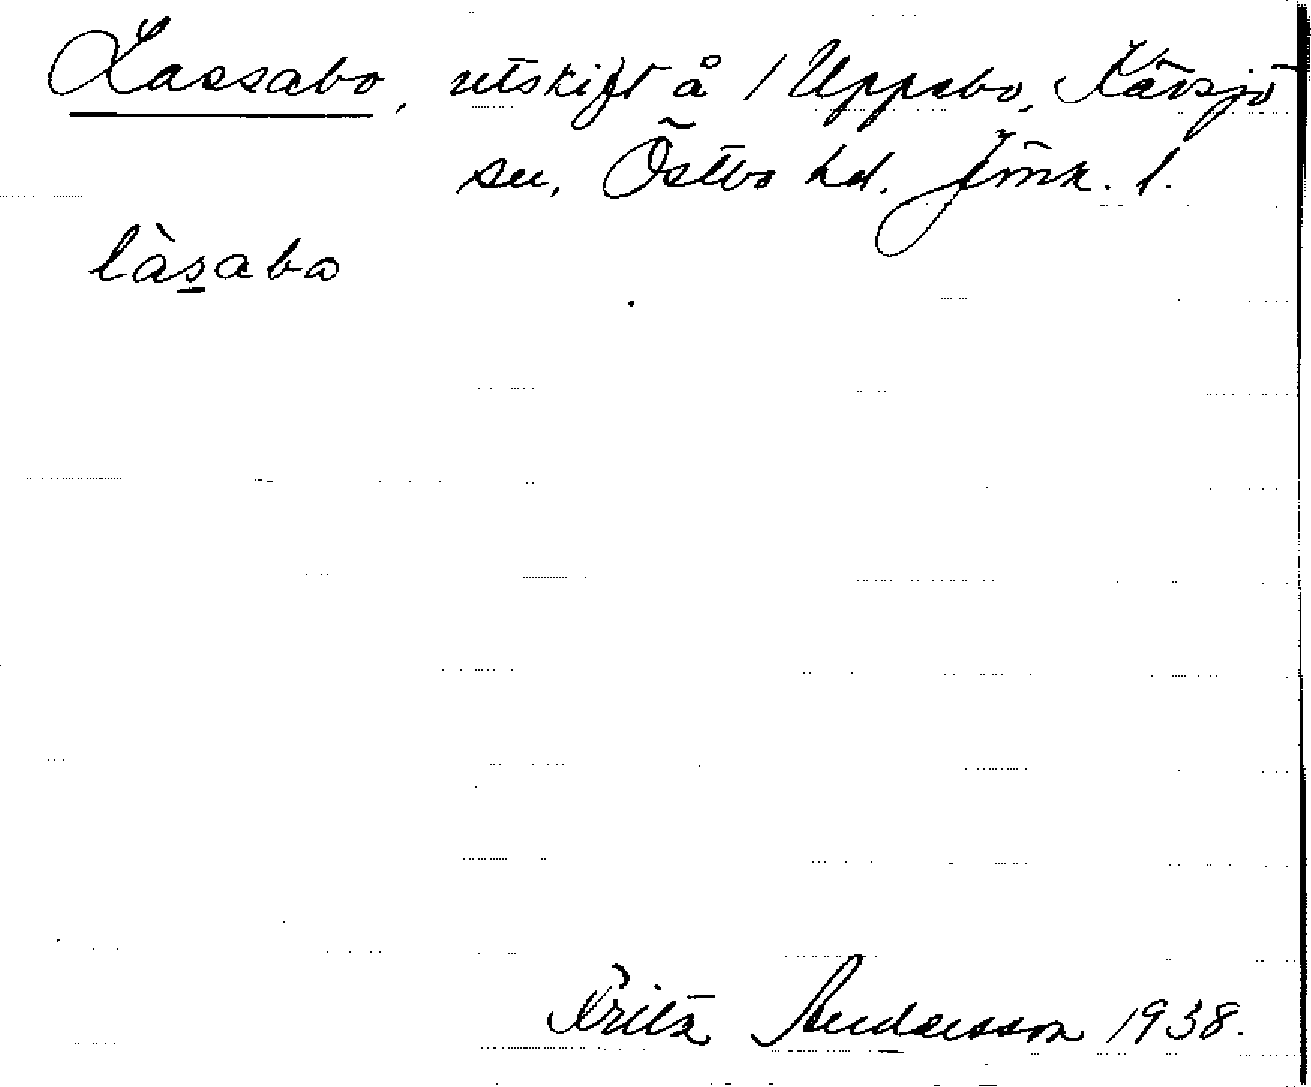 Lassabo, utskift å 1 Uppebo, Kävsjö
sn, Östbo hd. Jönk. l.
làsabo
Fritz Andersson 1938.